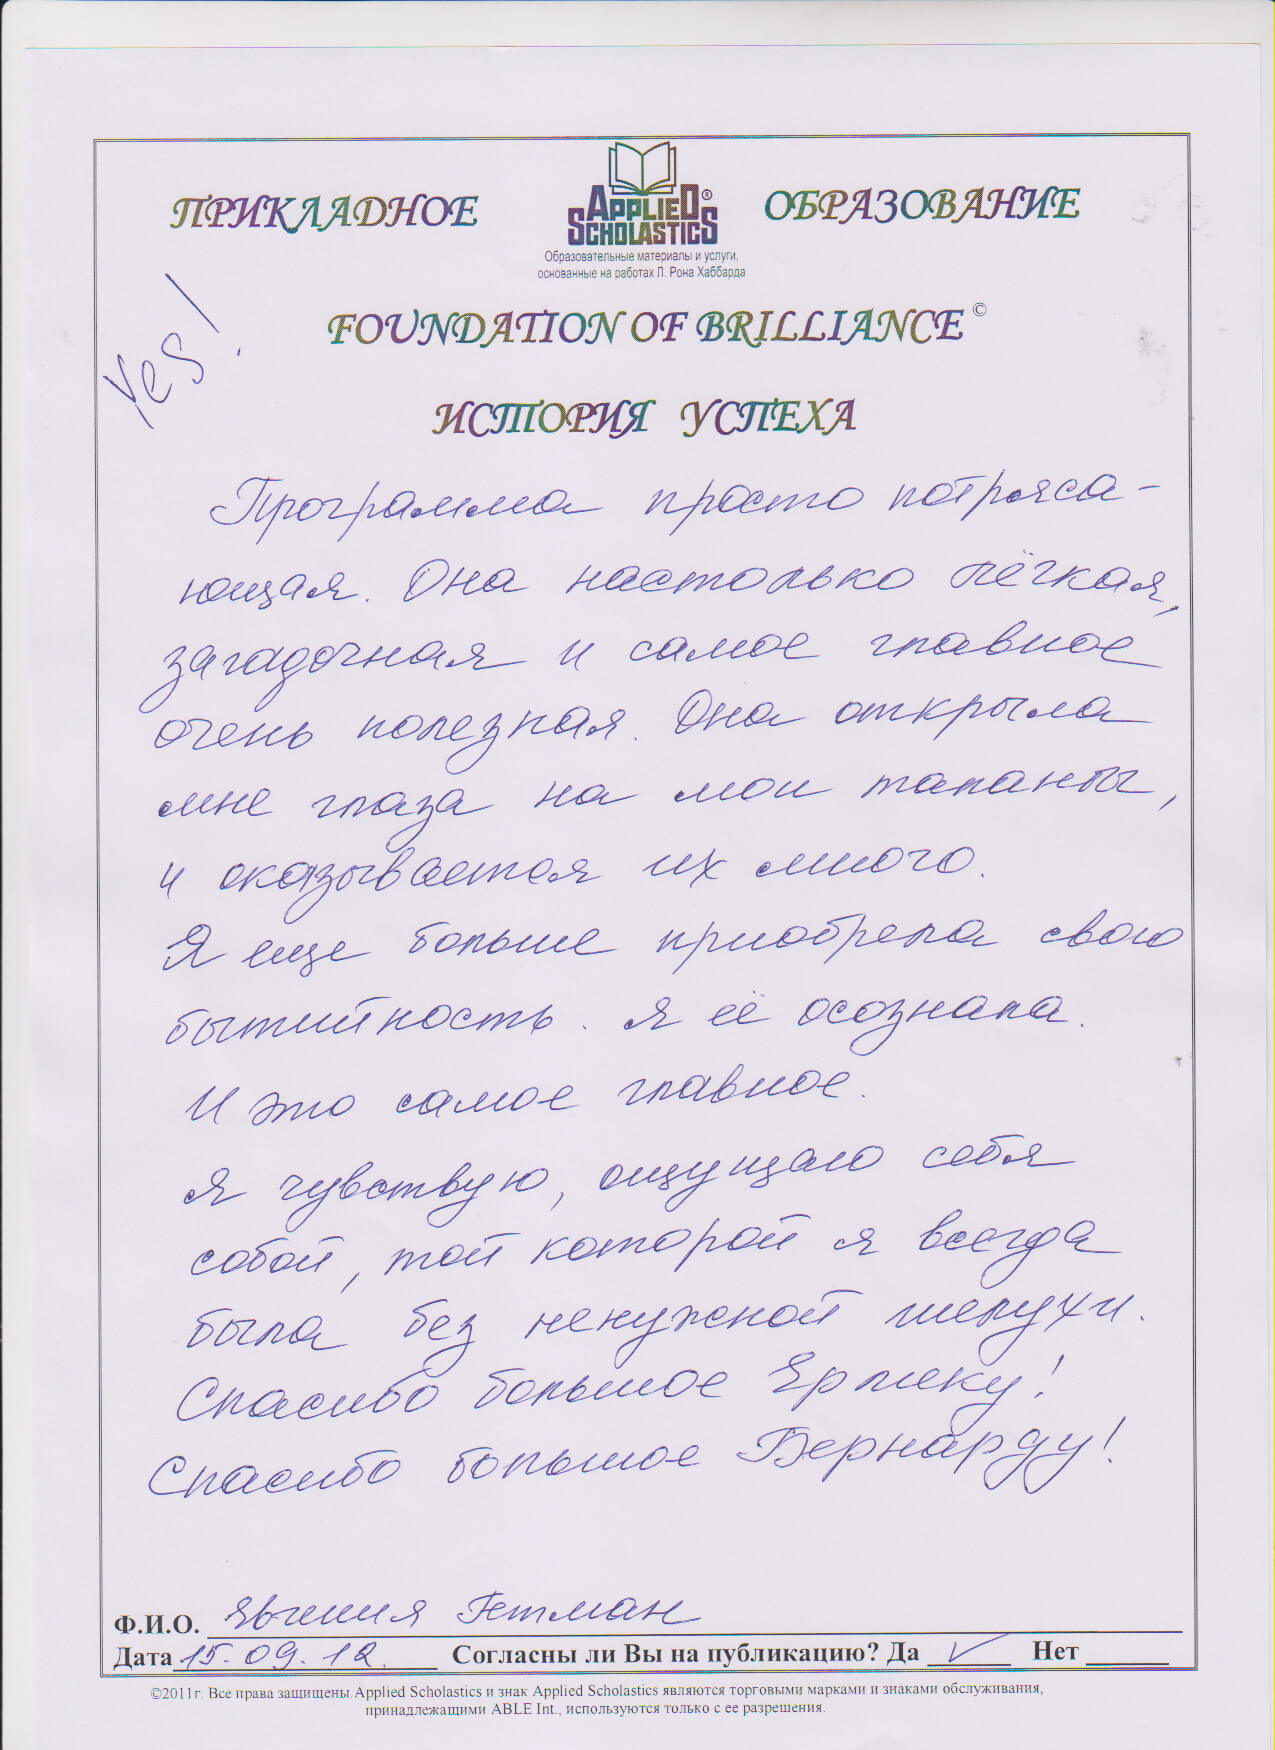 ПРИКЛАДНОЕ
APPLIED SCHOLASTICS®
ОБРАЗОВАНИЕ
Образовательные материалы и услуги,
основанные на работах Л. Рона Хаббарда
Yes!
FOUNDATION OF BRILLIANCE ©
ИСТОРИЯ УСПЕХА
Программа просто потряса-
ющая. Она настолько лёгкая,
загадочная и самое главное
очень полезная. Она открыла
мне глаза на мои таланты,
и оказывается их много.
Я еще больше приобрела свою
бытийность. Я её осознала.
И это самое главное.
Я чувствую, ощущаю себя
собой, той которой я всегда
была без ненужной шелухи.
Спасибо большое Ярлыку!
Спасибо большое Бернарду!
Ф.И.О. Явгения Гетман
Дата 15.09.12. Согласны ли Вы на публикацию? Да ✓ Нет
©2011г. Все права защищены.Applied Scholastics и знак Applied Scholastics являются торговыми марками и знаками обслуживания,
принадлежащими ABLE Int., используются только с ее разрешения.